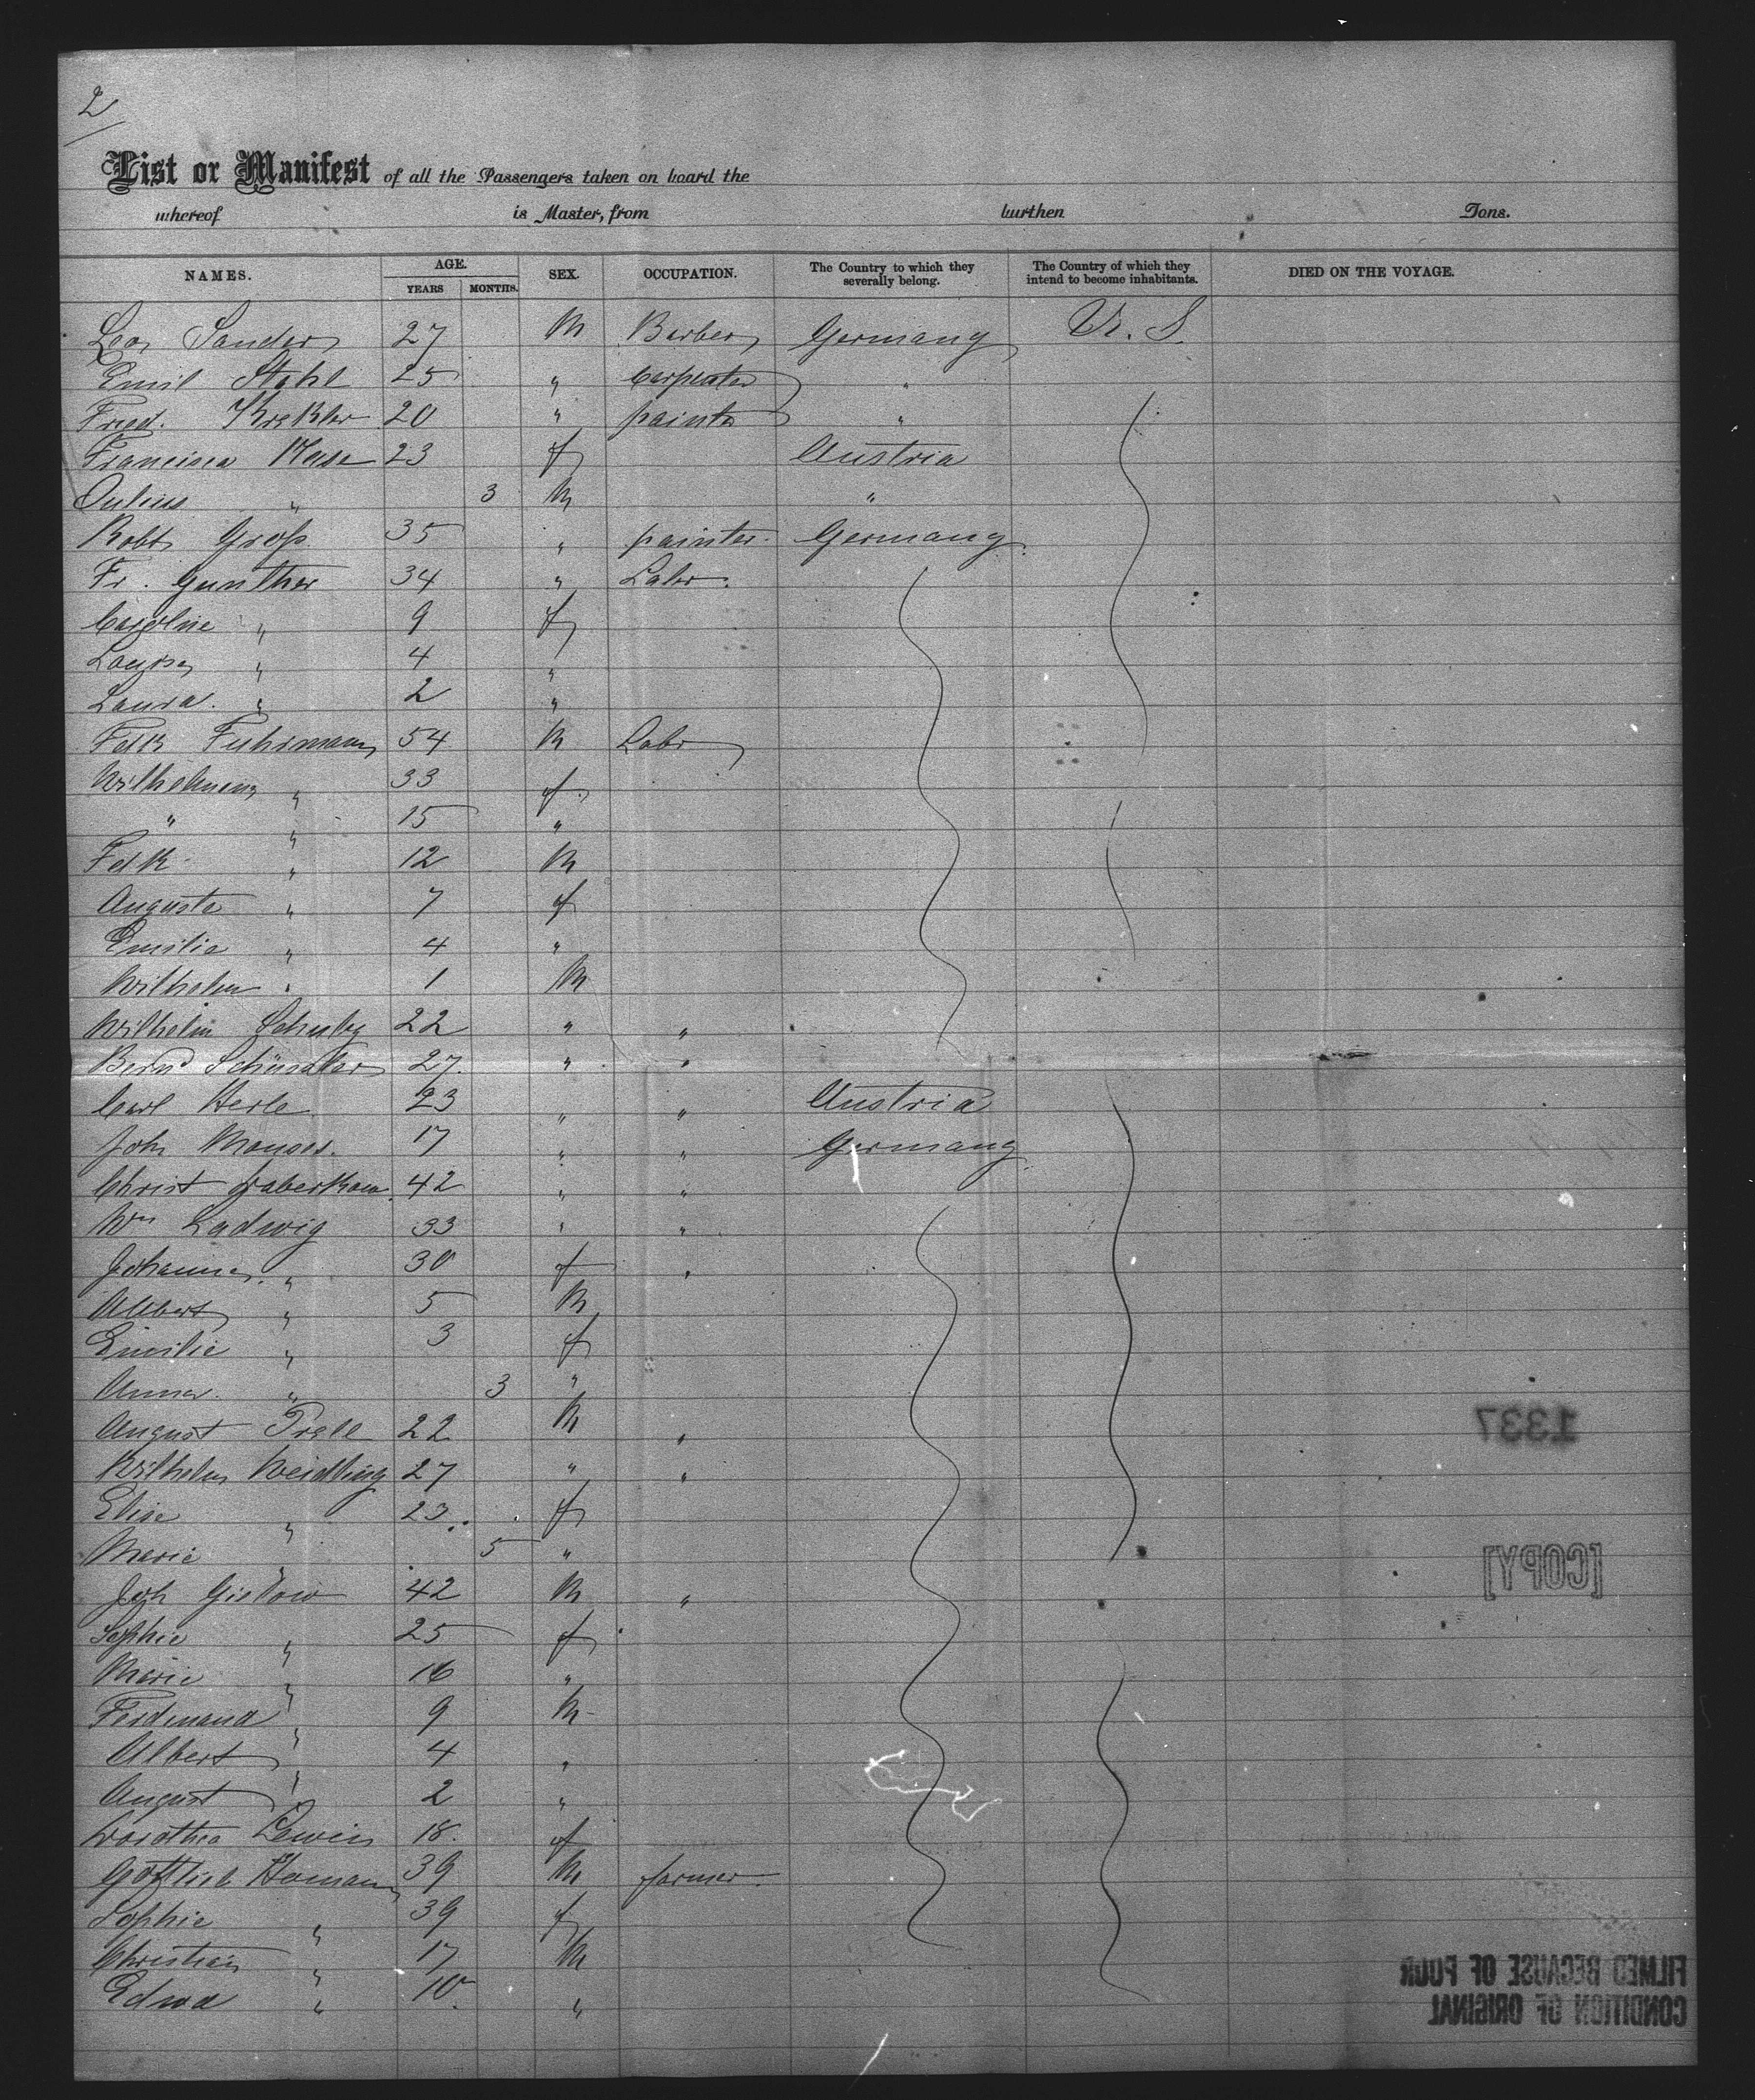 2
List or Manifest of all the Passengers taken on board the
whereof is Master, from burthen Tons.
NAMES. AGE. YEARS MONTHS. SEX. OCCUPATION. The Country to which they severally belong. The Country of which they intend to become inhabitants. DIED ON THE VOYAGE.
Leo Sander 27 M Barber Germany U. S.
Emil Stahl 25 " Carpenter "
Fried. 20 " painter "
Francisca 23 f Austria
Julius " 3 M "
Robt Groß 35 " painter Germany
Fr. Gunther 34 " Labr.
Caroline " 9 f
Louise " 4 "
Laura " 2 "
Fdk Fuhrmann 54 M Labr
Wilhelmina " 33 f
" " 15 "
Fdk " 12 M
Auguste " 7 f
Emilie " 4 "
Wilhelm " 1 M
Wilhelm 22 " "
Bernd 27. " "
Carl Herle 23 " " Austria
Joh 17 " " Germany
Christ Haberkow 42 " "
Wm Ladwig 33 " "
Johanna " 30 f "
Albert " 5 M
Emilie " 3 f
Anna " 3 "
August Prell 22 M "
Wilhelm Weidling 27 " "
Elise " 23 f
Marie " 5 "
Joh Gistow 42 M "
Sophie " 25 f
Marie " 16 "
Ferdinand " 9 M
Albert " 4 "
August " 2 "
Dorothea Lewin 18. f
Gottlieb Hamann 39 M farmer
Sophie " 39 f
Christian " 17 M
Edwd " 10 "
1337
[COPY]
FILMED BECAUSE OF POOR
CONDITION OF ORIGINAL